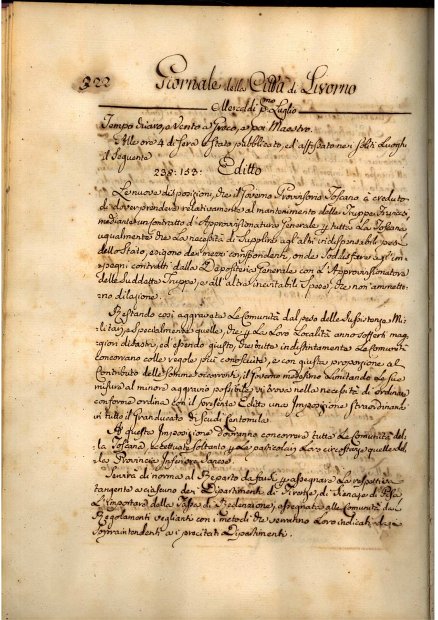 322 Giornale della Città di Livorno
Mercoledì Pmo Luglio
Tempo chiaro, e Vento a Greco, e poi Maestro.
Alle ore 4 di sera è stato pubblicato, ed affissato nei soliti Luoghi
il Seguente
Editto
Le nuove disposizioni, che il Governo Provvisorio Toscano à creduto
di dover prendere relativamente al mantenimento delle Truppe Francesi
mediante un contratto d'Approvvisionatura Generale per tutta la Toscana
ugualmente che la necessità di Supplire agl'altri indispensabili pesi
dello Stato, esigono dei mezzi corrispondenti, onde Soddisfare agl'im-
pegni contratti dalla Depositeria Generale con l'Approvvisionatura
delle Suddette Truppe, e all'altre inevitabili Spese, che non ammetto-
no dilazione.
Restando così aggravate le Comunità dal peso delle Sussistenze Mi-
litari, e specialmente quelle, che per la Loro Località anno sofferti mag-
giori disastri, ed essendo giusto, che tutte indistintamente le Comunità
concorrano colle regole più conosciute, e con giusta proporzione al
Contributo delle Somme occorrenti, il Governo medesimo Limitando le sue
misure al minore aggravio possibile, si trova nella necessità di ordinare
conforme ordina con il presente Editto una Imposizione straordinaria
in tutto il Granducato di Scudi Centomila.
A questa Imposizione dovranno concorrere tutte le Comunità del-
la Toscana, eccettuate soltanto per le particolari Loro circostanze quelle del-
la Provincia Inferiore Senese.
Servirà di norma al Reparto da farsi per assegnare la respettiva
tangente a ciascuno dei Dipartimenti di Firenze, di Siena, e di Pisa
L'importare della Tassa di Redenzione, assegnata alle Comunità dai
Regolamenti veglianti con i metodi che saranno Loro indicati dai
Soprintendenti ai precitati Dipartimenti.